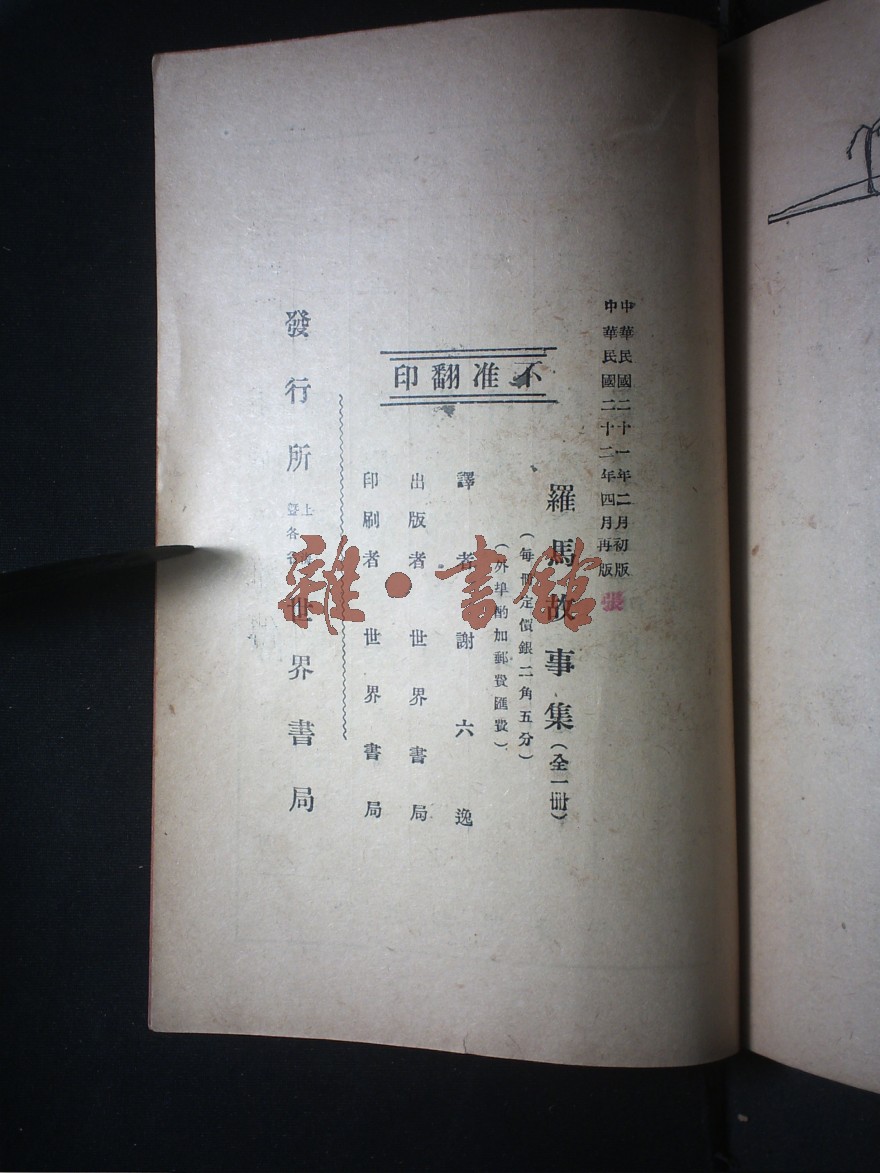 中華民國二十一年二月初版
中華民國二十二年四月再版
張
羅馬故事集(全一冊)
(每冊定價銀二角五分)
(外埠酌加郵費匯費)
不准翻印
譯者 謝六逸
出版者 世界書局
印刷者 世界書局
發行所 上
各省 世界書局
雜·書館